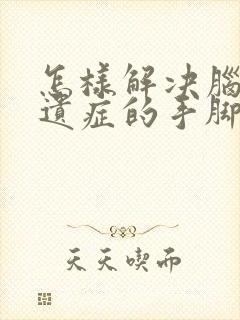 怎樣解決腦
遺症的手腳
天天喫而